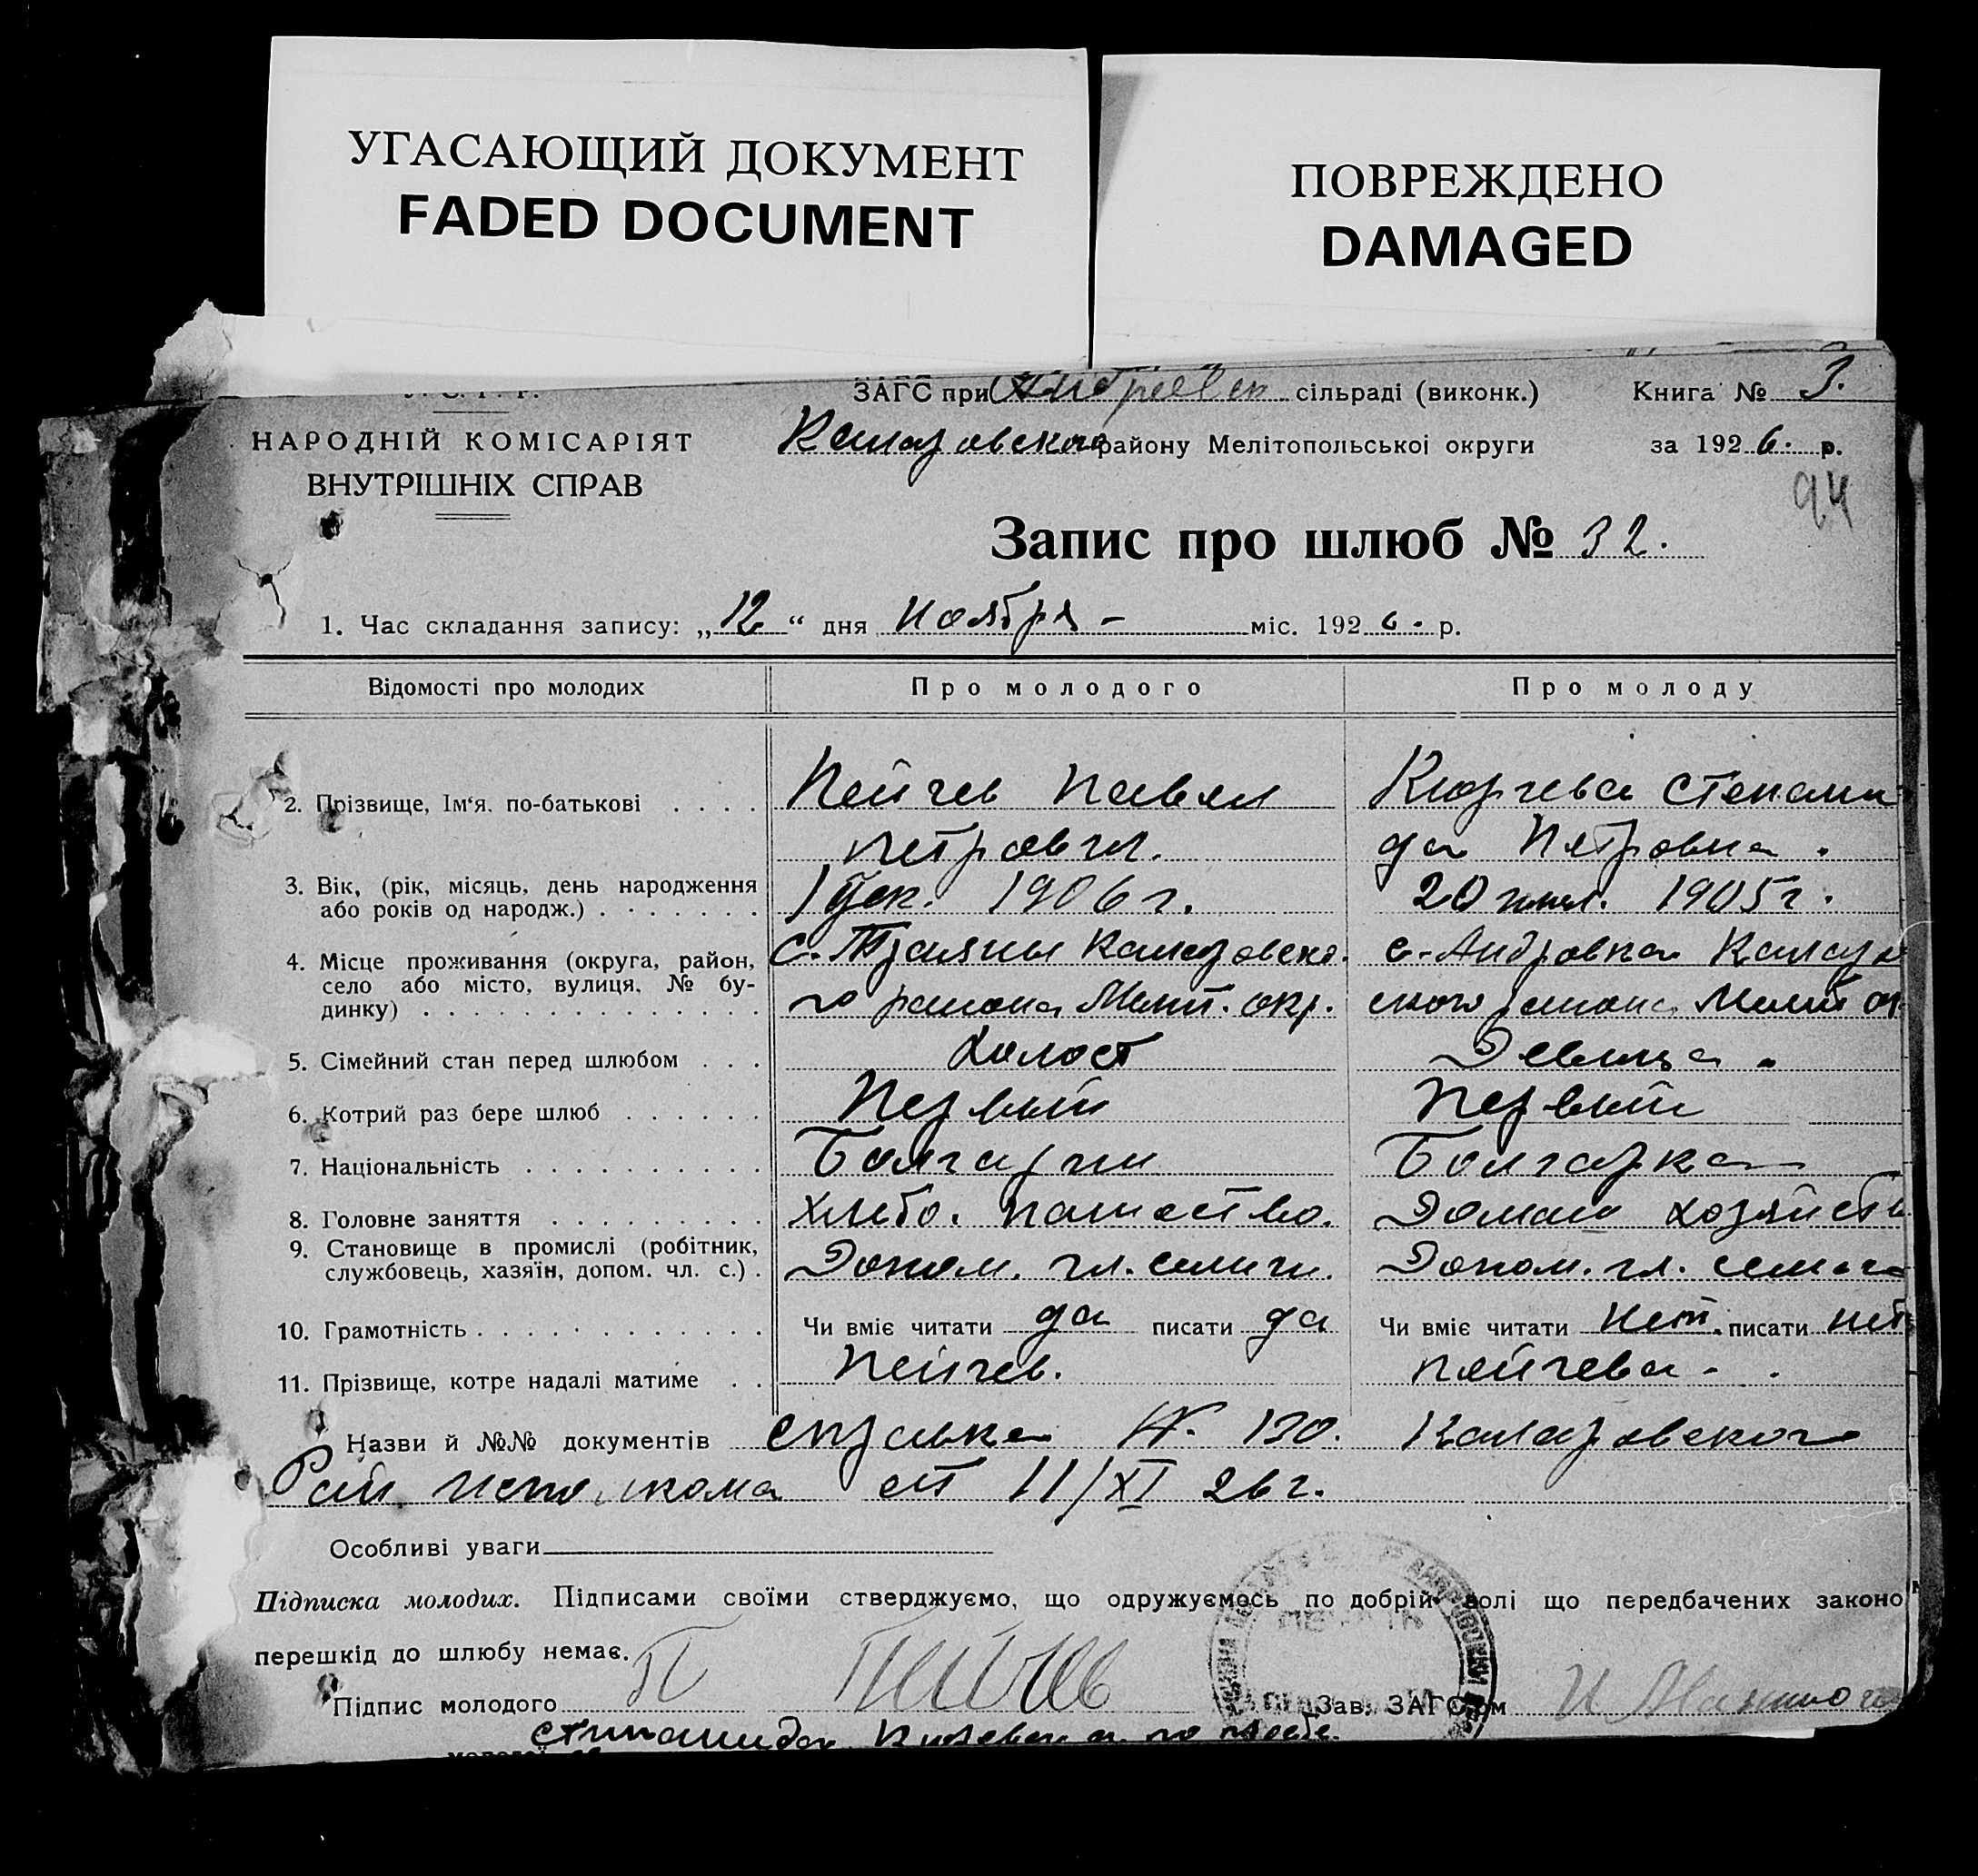 УГАСАЮЩИЙ ДОКУМЕНТ
FADED DOCUMENT
ПОВРЕЖДЕНО
DAMAGED
ЗАГС при сільраді (виконк.) Книга № 3.
НАРОДНІЙ КОМІСАРІЯТ
ВНУТРІШНІХ СПРАВ
району Мелітопольської округи за 1926. р.
94
Запис про шлюб № 32.
1. Час складання запису: „12“ дня Ноября - міс. 1926. р.
Відомості про молодих Про молодого Про молоду
2. Прізвище, Ім‘я, по-батькові . . . . Пейчев Павел Кюрчева Степани
петрович. да Петровна.
3. Вік, (рік, місяць, день народження
або років од народж.) . . . . . . . 1 дек. 1906 г. 20 1905 г.
4. Місце проживання (округа, район,
село або місто, вулиця, № бу-
динку) . . . . . . . . . . . . . .
с. Трояны Коларовско.
го района Мелит. окр.
с. Андровка Колар
ского района Мелит ок
5. Сімейний стан перед шлюбом . . . Холост Девица.
6. Котрий раз бере шлюб . . . . . . Первый Первый
7. Національність . . . . . . . . . . Болгарин Болгарка
8. Головне заняття . . . . . . . . . Хлебо. пашество. Домаш хозяйств
9. Становище в промислі (робітник,
службовець, хазяїн, допом. чл. с.) . Допом. чл. семьи. Допом. чл. семьи
10. Грамотність . . . . . . . . . . . . Чи вміє читати да писати да Чи вміє читати нет. писати нет
11. Прізвище, котре надалі матиме . . Пейчев. Пейчева.
Назви й №№ документів справка №. 130. Коларовского
Рай исполкома от 11/XI 26 г.
Особливі уваги
Підписка молодих. Підписами своїми стверджуємо, що одружуємось по добрій волі що передбачених законо
перешкід до шлюбу немає.
Підпис молодого П Пейчев Зав. ЗАГС'ом